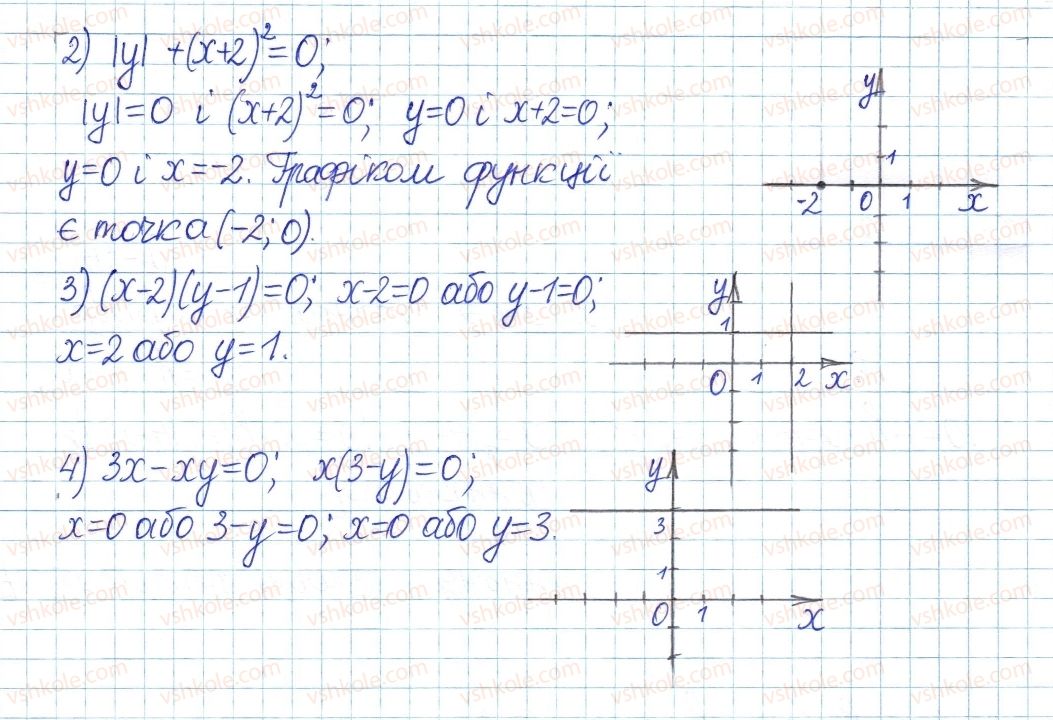 2) |y| + (x+2)² = 0;
|y|=0 і (x+2)²=0; y=0 і x+2=0;
y=0 і x=-2. Графіком функції
є точка (-2; 0).
y
1
-2 0 1 x
3) (x-2)(y-1)=0; x-2=0 або y-1=0;
x=2 або y=1.
y
1
0 1 2 x
4) 3x-xy=0; x(3-y)=0;
x=0 або 3-y=0; x=0 або y=3.
y
3
1
0 1 x
vshkole.com